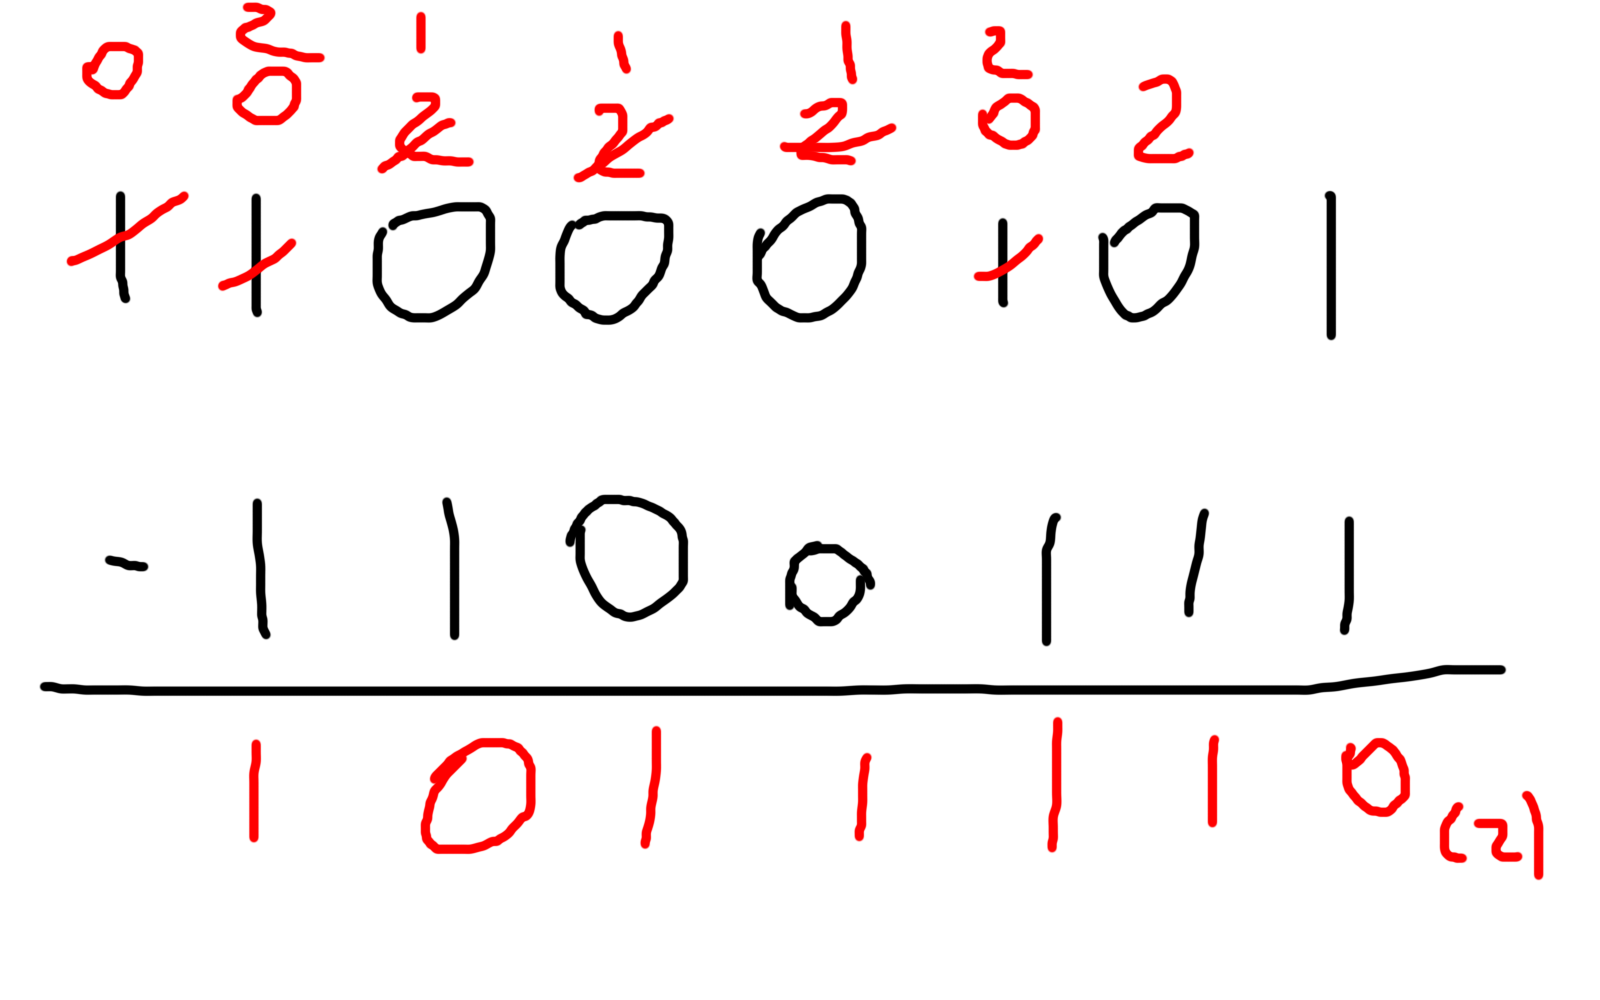 2 1 1 1 2
0 0 2 2 2 0 2
1 1 0 0 0 1 0 1
- 1 1 0 0 1 1 1
1 0 1 1 1 1 0 (2)